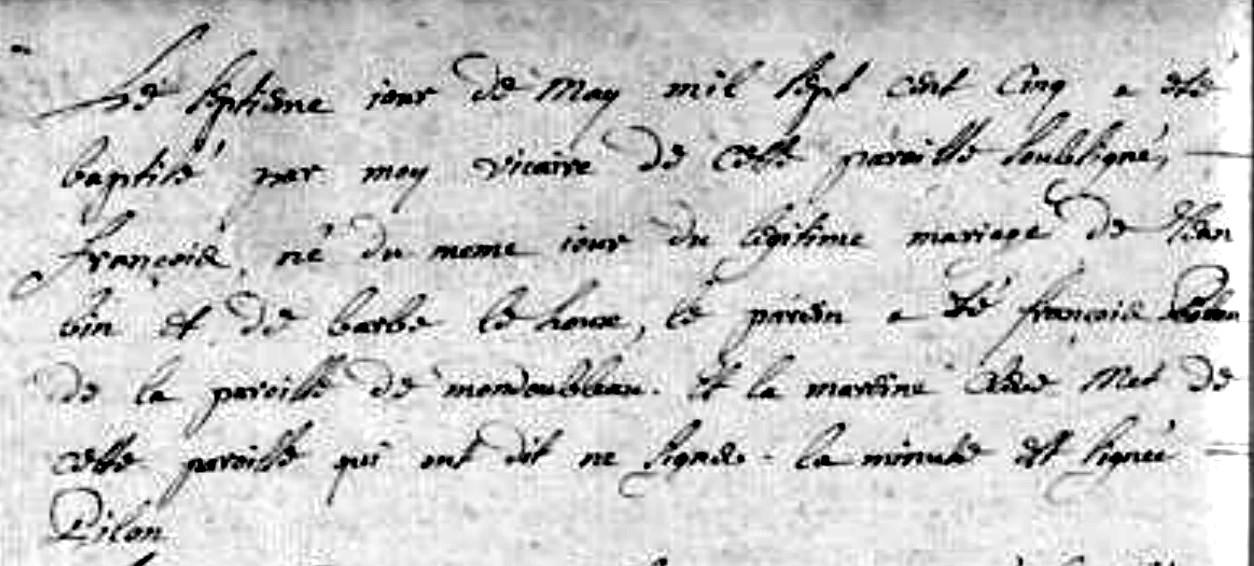 Le septieme iour de May mil sept cent cinq a eté
baptisé par moy vicaire de cette paroisse soubsigné,
françois, né du meme iour du legitime mariage de Jean
bin et de barbe le houx, le parein a eté françois
de la paroisse de mondoubleau. Et la mareine Met de
cette paroisse qui ont dit ne signer. la minute est signée
Pilon